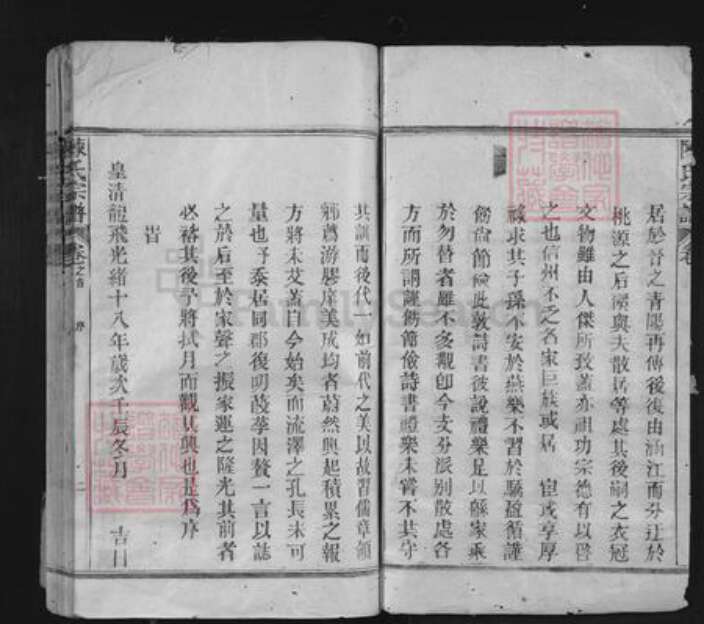 陳氏宗譜
居於晉之青陽再傳後復由涵江而分迁於
桃源之后溪與夫散居等處其後嗣之衣冠
文物雖由人傑所致蓋亦祖功宗德有以啓
之也信州不乏名家巨族或居 宦或享厚
祿求其子孫不安於燕樂不習於驕盈循謹
飭當節儉此敦詩書彼說禮樂足以縣家乘
於勿替者雖不多覯卽今支分派別散處各
方而所謂謹飭節儉詩書禮樂未嘗不共守
其訓而後代一如前代之美以故習儒章領
鄉薦游膠庠美成均者蔚然興起積累之報
方將未艾蓋自今始矣而流澤之孔長未可
量也予忝居同郡復叨葭莩因贅一言以誌
之於后至於家聲之振家運之隆光其前者
必裕其後予將拭月而觀其興也是爲序
旹
皇清龍飛光緒十八年歲次壬辰冬月 吉日
陳氏宗譜 卷之首 序 二
FamilySearch